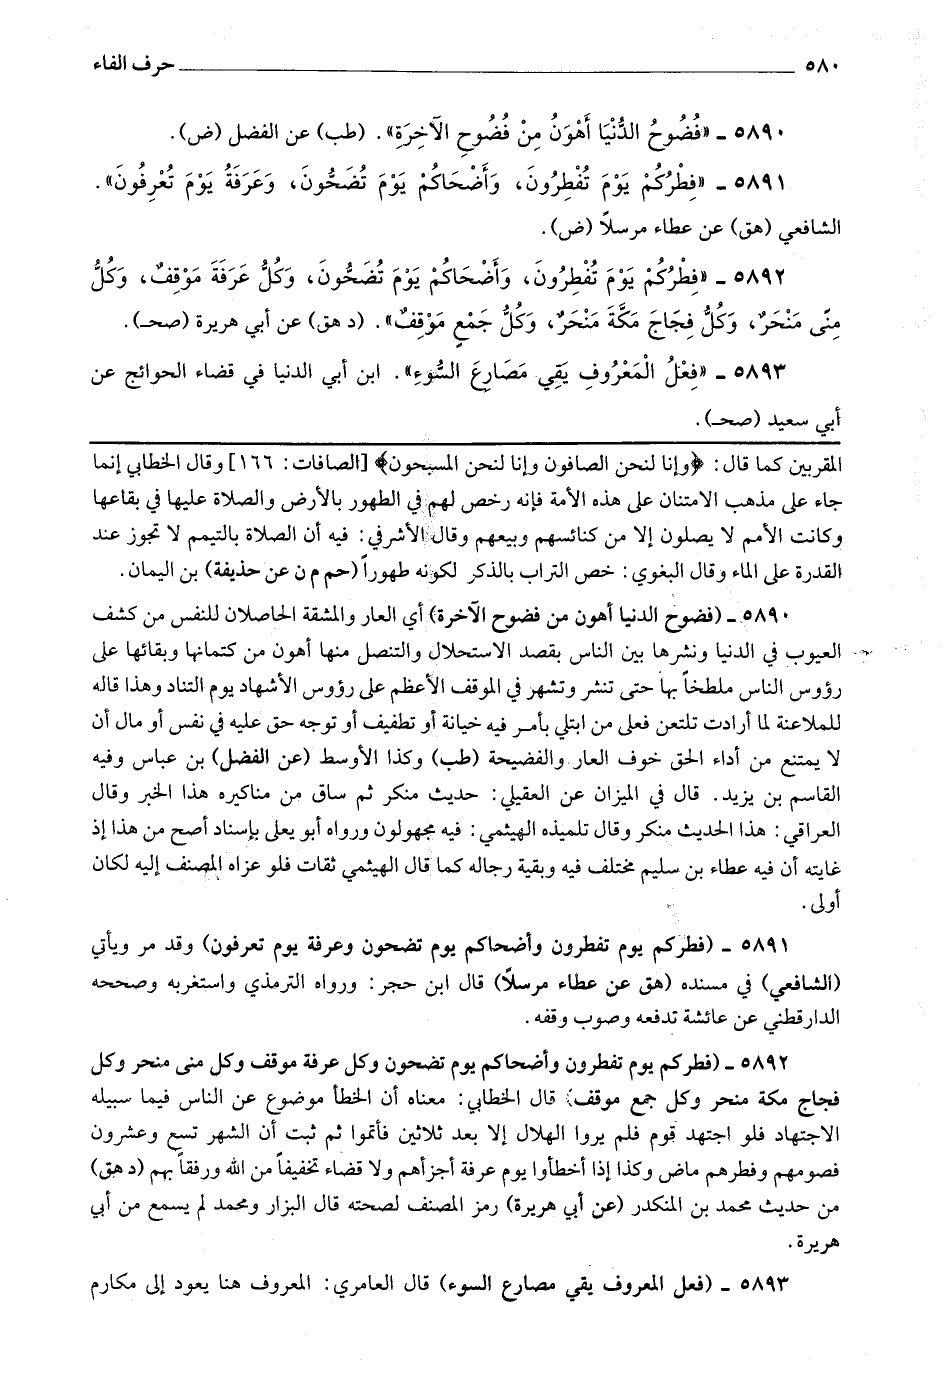 ٥٨٠ حرف الفاء
٥٨٩٠ ـ «فُضُوحُ الدُّنْيَا أَهْوَنُ مِنْ فُضُوحِ الْآخِرَةِ». (طب) عن الفضل (ض).
٥٨٩١ ـ «فِطْرُكُمْ يَوْمَ تُفْطِرُونَ، وَأَضْحَاكُمْ يَوْمَ تُضَحُّونَ، وَعَرَفَةُ يَوْمَ تُعْرِفُونَ».
الشافعي (هق) عن عطاء مرسلاً (ض).
٥٨٩٢ ـ «فِطْرُكُمْ يَوْمَ تُفْطِرُونَ، وَأَضْحَاكُمْ يَوْمَ تُضَحُّونَ، وَكُلُّ عَرَفَةَ مَوْقِفٌ، وَكُلُّ
مِنًى مَنْحَرٌ، وَكُلُّ فِجَاجَ مَكَّةَ مَنْحَرٌ، وَكُلُّ جَمْعٍ مَوْقِفٌ». (د هق) عن أبي هريرة (صحـ).
٥٨٩٣ ـ «فِعْلُ الْمَعْرُوفِ يَقِي مَصَارِعَ السُّوءِ». ابن أبي الدنيا في قضاء الحوائج عن
أبي سعيد (صحـ).
المقربين كما قال: ﴿وإنا لنحن الصافون وإنا لنحن المسبحون﴾ [الصافات: ١٦٦] وقال الخطابي إنما
جاء على مذهب الامتنان على هذه الأمة فإنه رخص لهم في الطهور بالأرض والصلاة عليها في بقاعها
وكانت الأمم لا يصلون إلا من كنائسهم وبيعهم وقال الأشرفي: فيه أن الصلاة بالتيمم لا تجوز عند
القدرة على الماء وقال البغوي: خص التراب بالذكر لكونه طهوراً (حم م ن عن حذيفة) بن اليمان.
٥٨٩٠ ـ (فضوح الدنيا أهون من فضوح الآخرة) أي العار والمشقة الحاصلان للنفس من كشف
العيوب في الدنيا ونشرها بين الناس بقصد الاستحلال والتنصل منها أهون من كتمانها وبقائها على
رؤوس الناس ملطخاً بها حتى تنشر وتشهر في الموقف الأعظم على رؤوس الأشهاد يوم التناد وهذا قاله
للملاعنة لما أرادت تلتعن فعلى من ابتلي بأمر فيه خيانة أو تطفيف أو توجه حق عليه في نفس أو مال أن
لا يمتنع من أداء الحق خوف العار والفضيحة (طب) وكذا الأوسط (عن الفضل) بن عباس وفيه
القاسم بن يزيد. قال في الميزان عن العقيلي: حديث منكر ثم ساق من مناكيره هذا الخبر وقال
العراقي: هذا الحديث منكر وقال تلميذه الهيثمي: فيه مجهولون ورواه أبو يعلى بإسناد أصح من هذا إذ
غايته أن فيه عطاء بن سليم مختلف فيه وبقية رجاله كما قال الهيثمي ثقات فلو عزاه المصنف إليه لكان
أولى.
٥٨٩١ ـ (فطركم يوم تفطرون وأضحاكم يوم تضحون وعرفة يوم تعرفون) وقد مر ويأتي
(الشافعي) في مسنده (هق عن عطاء مرسلاً) قال ابن حجر: ورواه الترمذي واستغربه وصححه
الدارقطني عن عائشة تدفعه وصوب وقفه.
٥٨٩٢ ـ (فطركم يوم تفطرون وأضحاكم يوم تضحون وكل عرفة موقف وكل منى منحر وكل
فجاج مكة منحر وكل جمع موقف) قال الخطابي: معناه أن الخطأ موضوع عن الناس فيما سبيله
الاجتهاد فلو اجتهد قوم فلم يروا الهلال إلا بعد ثلاثين فأتموا ثم ثبت أن الشهر تسع وعشرون
فصومهم وفطرهم ماض وكذا إذا أخطأوا يوم عرفة أجزأهم ولا قضاء تخفيفاً من الله ورفقاً بهم (د هق)
من حديث محمد بن المنكدر (عن أبي هريرة) رمز المصنف لصحته قال البزار ومحمد لم يسمع من أبي
هريرة.
٥٨٩٣ ـ (فعل المعروف يقي مصارع السوء) قال العامري: المعروف هنا يعود إلى مكارم